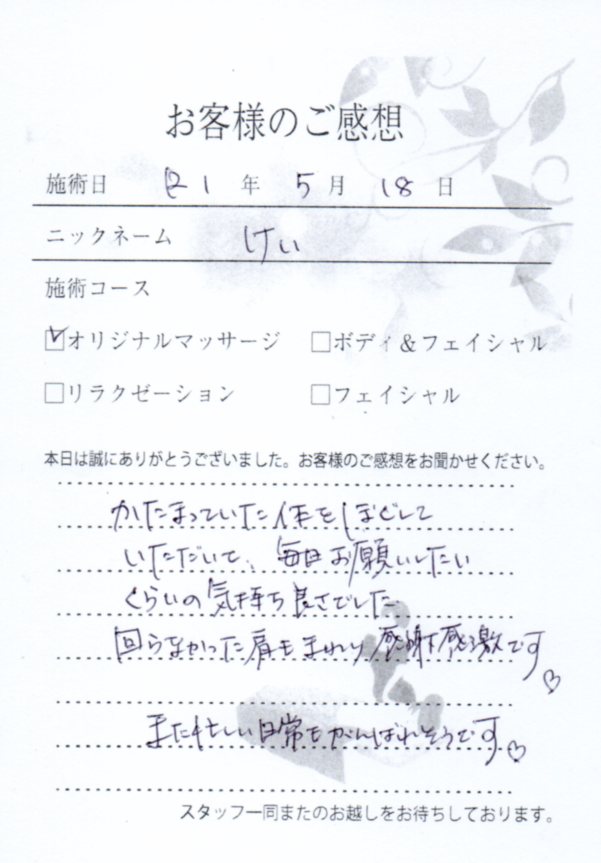 お客様のご感想
施術日 R21年 5月 18日
ニックネーム けい
施術コース
☑オリジナルマッサージ □ボディ&フェイシャル
□リラクゼーション □フェイシャル
本日は誠にありがとうございました。お客様のご感想をお聞かせください。
かたまっていた体をほぐして
いただいて、毎日お願いしたい
くらいの気持ち良さでした
回らなかった肩もまわり感謝感激です♡
また忙しい日常もがんばれそうです♡
スタッフ一同またのお越しをお待ちしております。